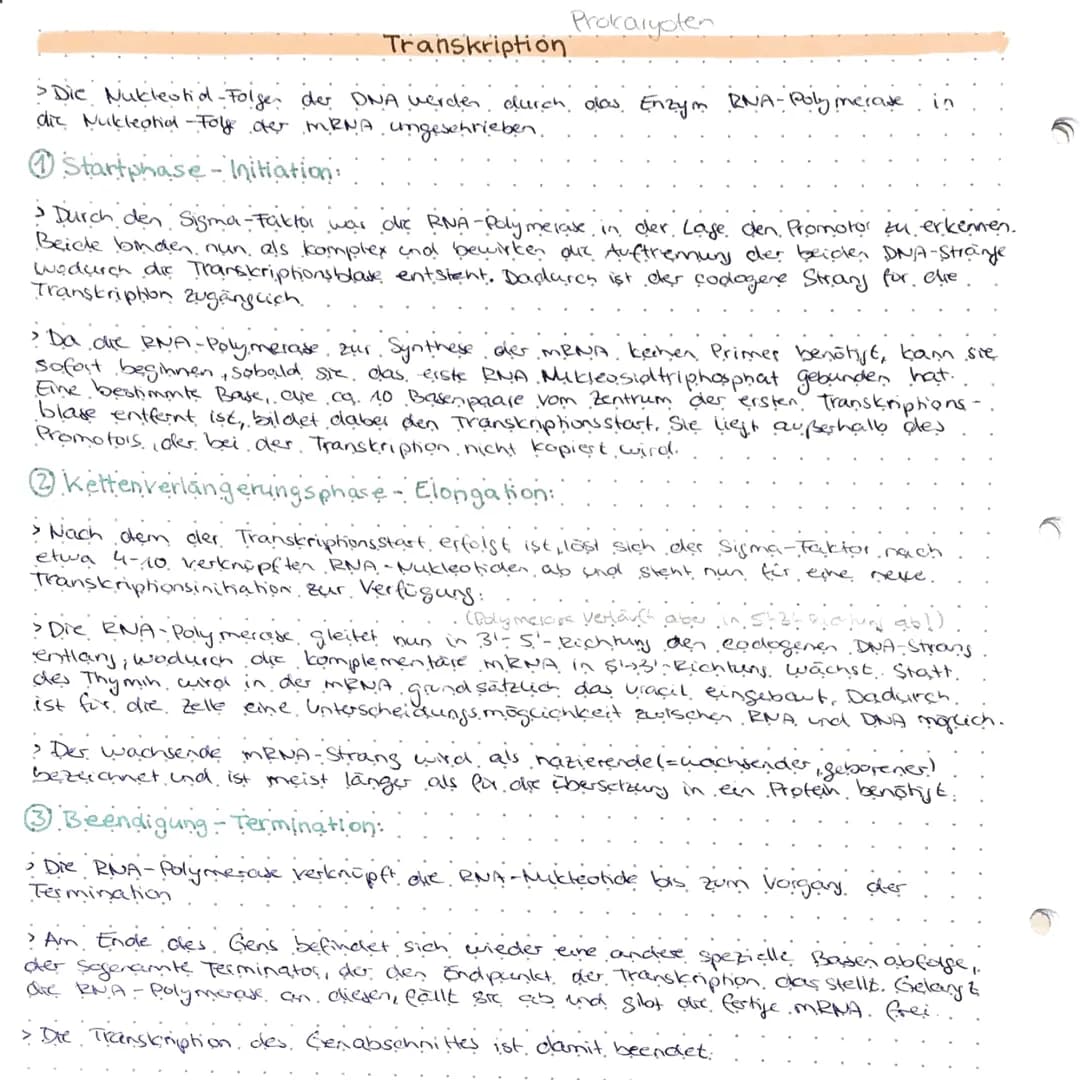 Prokaryoten
Transkription
> Die Nukleotid-Folgen der DNA werden durch das Enzym RNA-Polymerase in
die Nukleotid-Folge der mRNA umgeschrieben.
① Startphase - Initiation:
> Durch den Sigma-Faktor war die RNA-Polymerase in der Lage den Promotor zu erkennen.
Beide binden nun als Komplex und bewirken die Auftrennung der beiden DNA-Stränge
wodurch die Transkriptionsblase entsteht. Dadurch ist der codogene Strang für die
Transkription zugänglich.
> Da die RNA-Polymerase zur Synthese der mRNA keinen Primer benötigt, kann sie
sofort beginnen, sobald sie das erste RNA Nukleosidtriphosphat gebunden hat.
Eine bestimmte Base, die ca. 10 Basenpaare vom Zentrum der ersten Transkriptions-
blase entfernt ist, bildet dabei den Transkriptionsstart. Sie liegt außerhalb des
Promotors, der bei der Transkription nicht kopiert wird.
② Kettenverlängerungsphase - Elongation:
> Nach dem der Transkriptionsstart erfolgt ist, löst sich der Sigma-Faktor nach
etwa 4-10 verknüpften RNA-Nukleotiden ab und steht nun für eine neue
Transkriptionsinitiation zur Verfügung.
(Polymerase verläuft aber in 5'-3' ab!)
> Die RNA-Polymerase gleitet nun in 3'-5'-Richtung den codogenen DNA-Strang
entlang, wodurch die komplementäre mRNA in 5'→3'-Richtung wächst. Statt
des Thymin wird in der mRNA grundsätzlich das Uracil eingebaut. Dadurch
ist für die Zelle eine Unterscheidungsmöglichkeit zwischen RNA und DNA möglich.
> Der wachsende mRNA-Strang wird als naszierende (=wachsender, geborener)
bezeichnet und ist meist länger als für die Übersetzung in ein Protein benötigt.
③ Beendigung - Termination:
> Die RNA-Polymerase verknüpft die RNA-Nukleotide bis zum Vorgang der
Termination
> Am Ende des Gens befindet sich wieder eine andere spezielle Basenabfolge,
der sogenannte Terminator, der den Endpunkt der Transkription darstellt. Gelangt
die RNA-Polymerase an diesen, fällt sie ab und gibt die fertige mRNA frei.
> Die Transkription des Genabschnittes ist damit beendet.